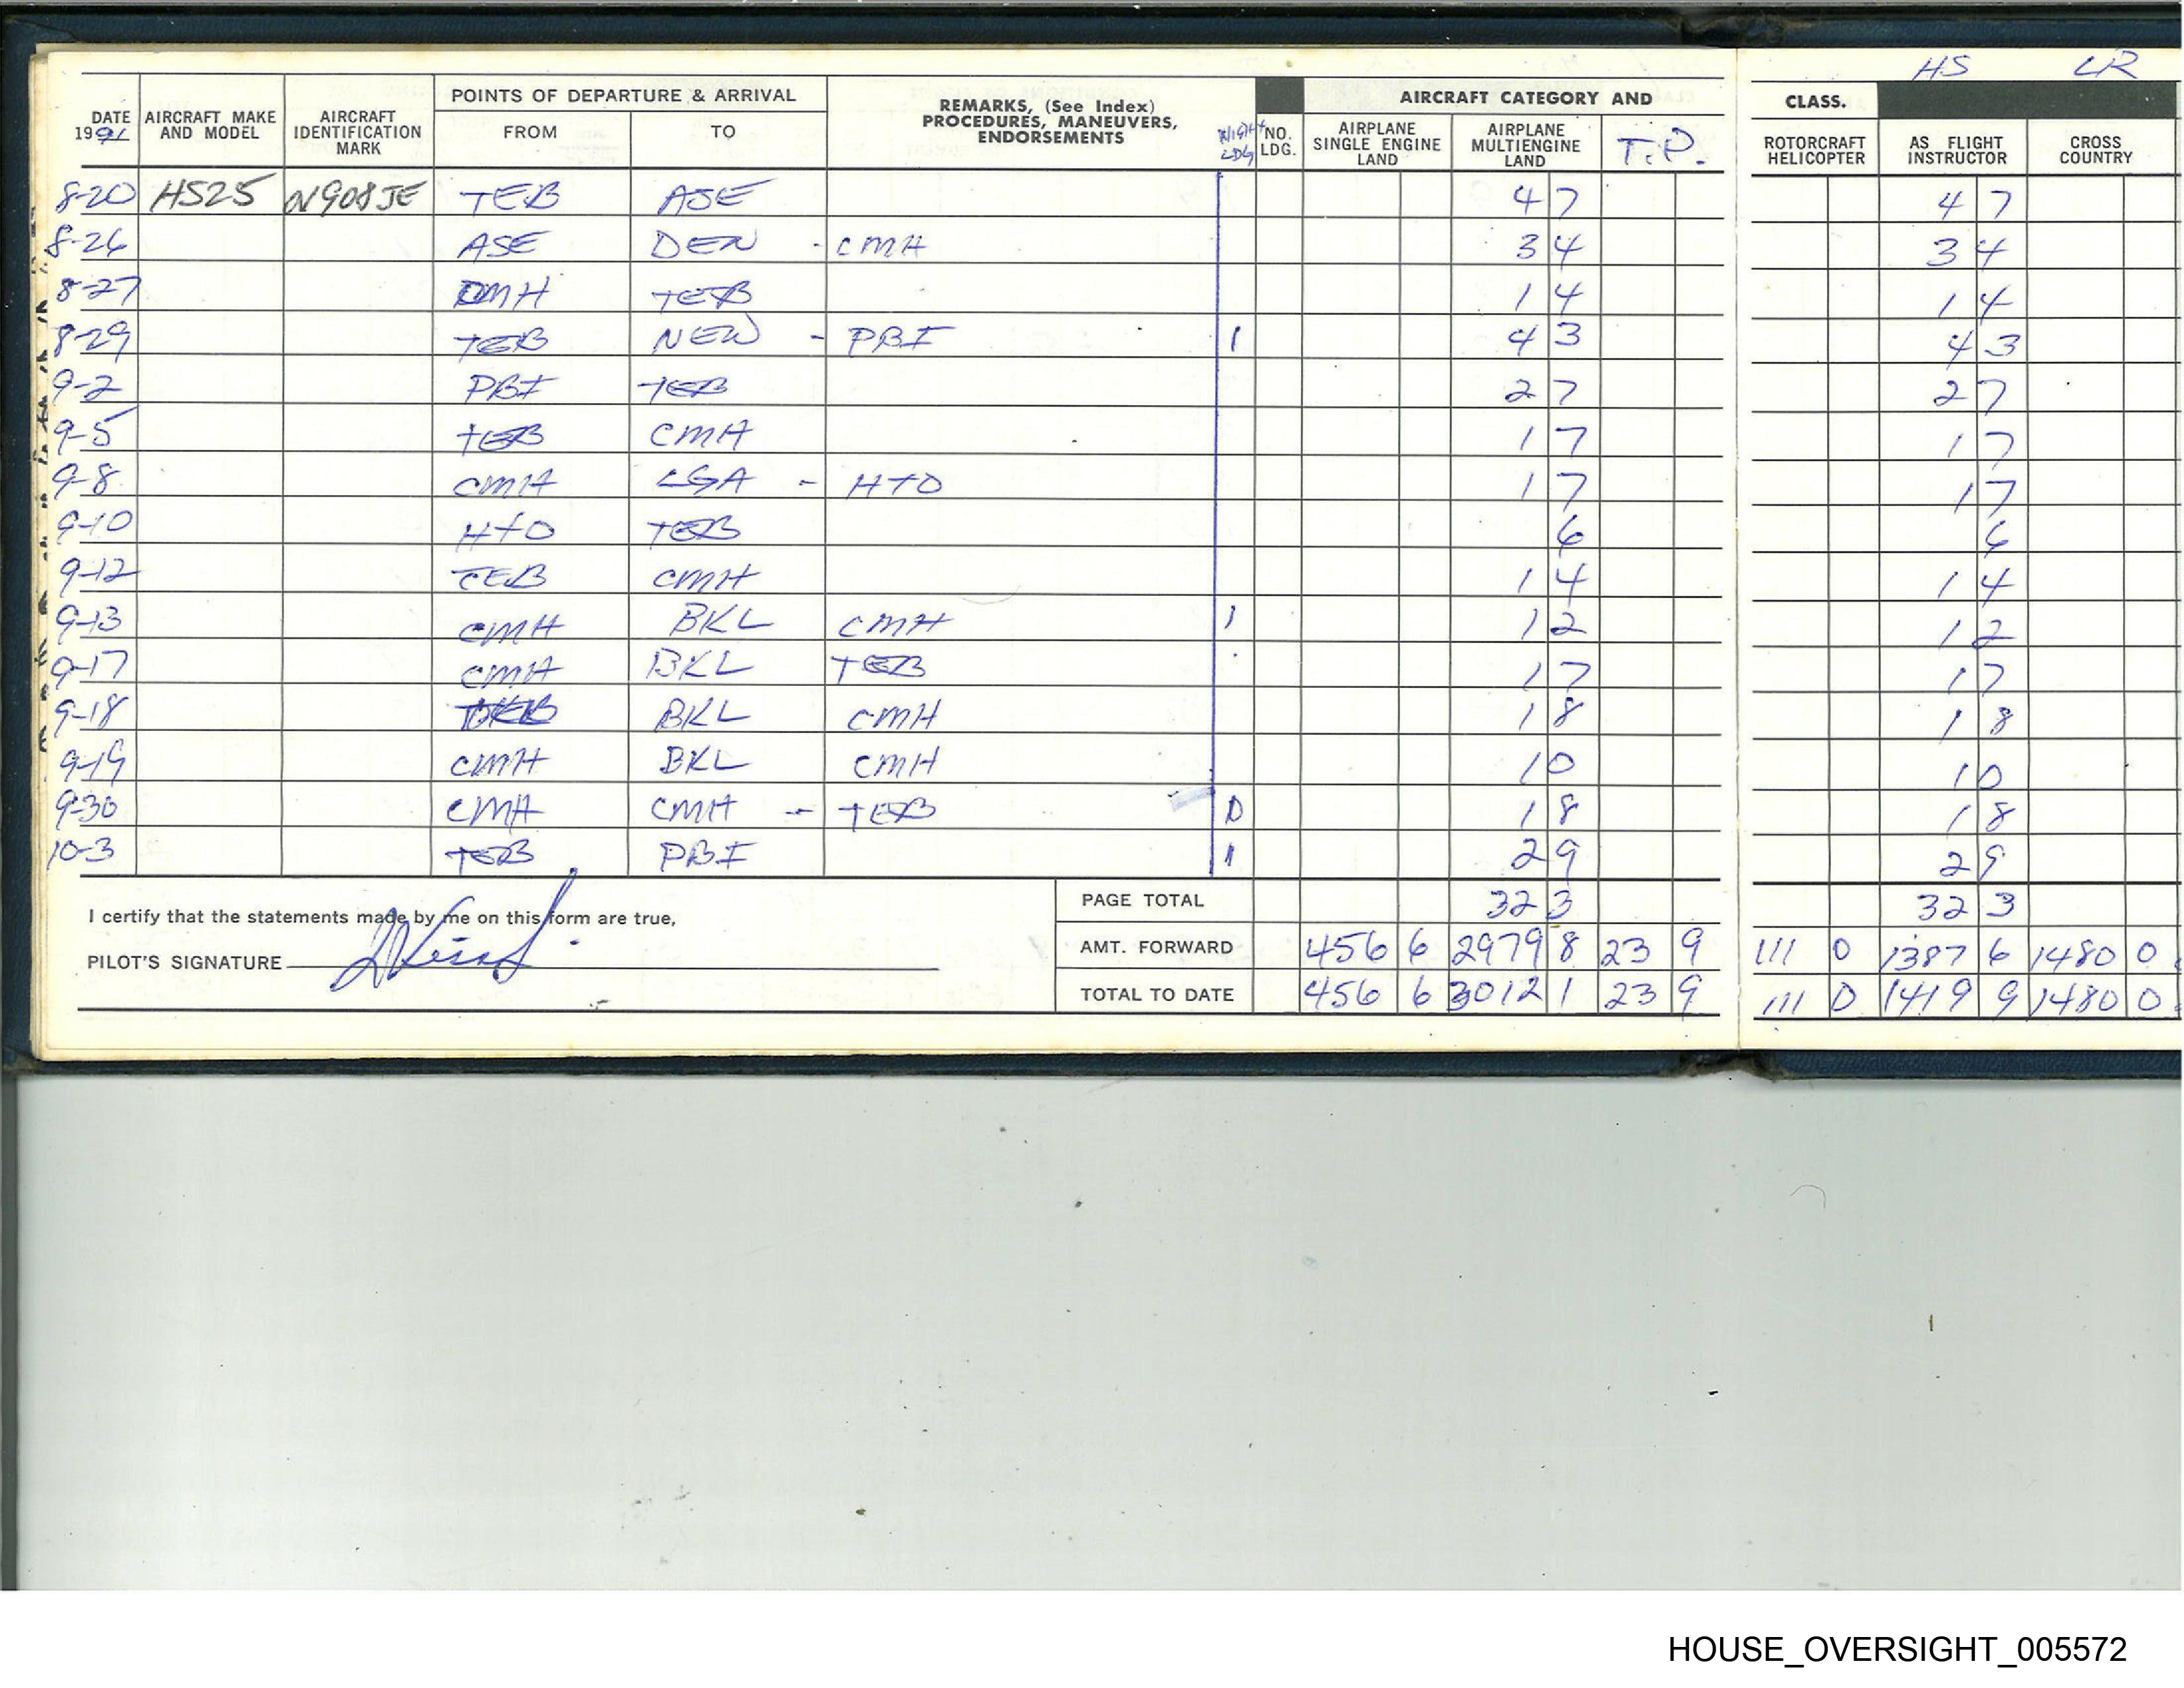 HS LR
POINTS OF DEPARTURE & ARRIVAL AIRCRAFT CATEGORY AND CLASS.
DATE 1991 AIRCRAFT MAKE AND MODEL AIRCRAFT IDENTIFICATION MARK FROM TO REMARKS, (See Index) PROCEDURES, MANEUVERS, ENDORSEMENTS NIGHT LDG NO. LDG. AIRPLANE SINGLE ENGINE LAND AIRPLANE MULTIENGINE LAND T.P. ROTORCRAFT HELICOPTER AS FLIGHT INSTRUCTOR CROSS COUNTRY
8-20 HS25 N908JE TEB ASE 4 7 4 7
8-26 ASE DEN - CMH 3 4 3 4
8-27 CMH TEB 1 4 1 4
8-29 TEB NEW - PBI 1 4 3 4 3
9-2 PBI TEB 2 7 2 7
9-5 TEB CMH 1 7 1 7
9-8 CMH LGA - HTO 1 7 1 7
9-10 HTO TEB 6 6
9-12 TEB CMH 1 4 1 4
9-13 CMH BKL CMH 1 1 2 1 2
9-17 CMH BKL TEB 1 7 1 7
9-18 BKL CMH 1 8 1 8
9-19 CMH BKL CMH 1 0 1 0
9-30 CMH CMH - TEB 1 8 1 8
10-3 TEB PBI 1 2 9 2 9
I certify that the statements made by me on this form are true,
PILOT'S SIGNATURE
PAGE TOTAL 32 3 32 3
AMT. FORWARD 456 6 2979 8 23 9 111 0 1387 6 1480 0
TOTAL TO DATE 456 6 3012 1 23 9 111 0 1419 9 1480 0
HOUSE_OVERSIGHT_005572